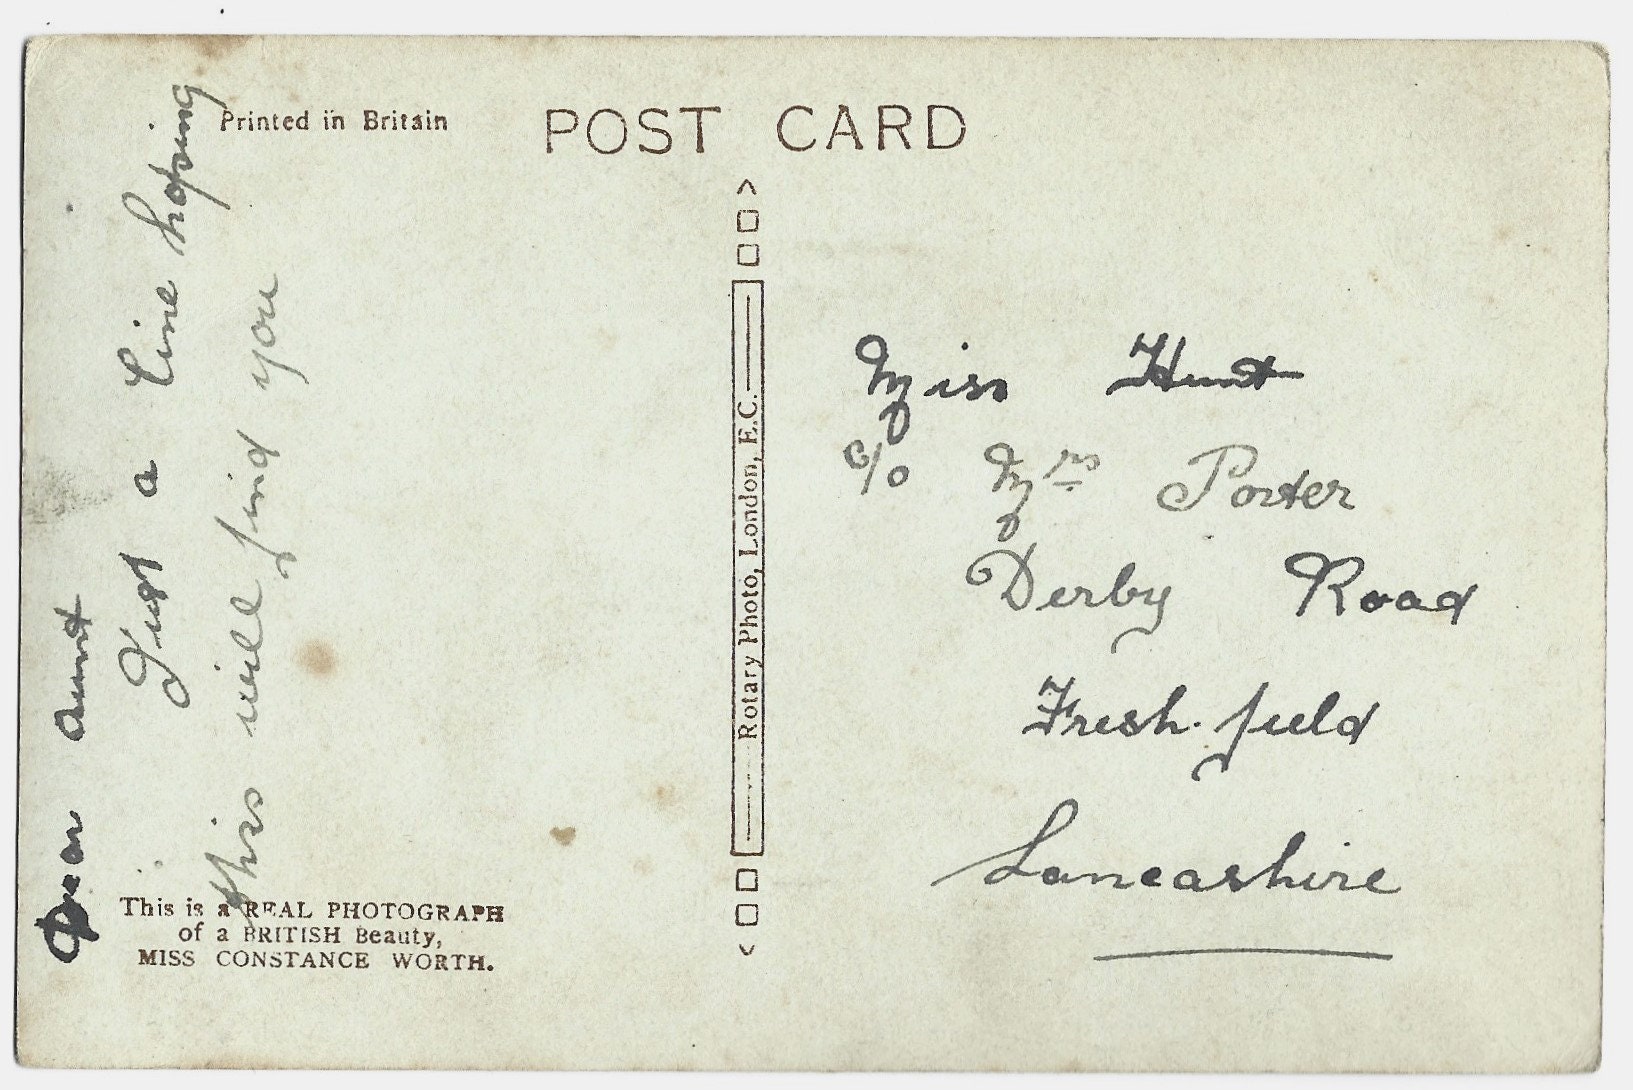 Printed in Britain
POST CARD
Dear Aunt
Just a line hoping
this will find you
This is a REAL PHOTOGRAPH
of a BRITISH Beauty,
MISS CONSTANCE WORTH.
Rotary Photo, London, E.C.
Miss Hunt
c/o Mrs Porter
Derby Road
Fresh-field
Lancashire